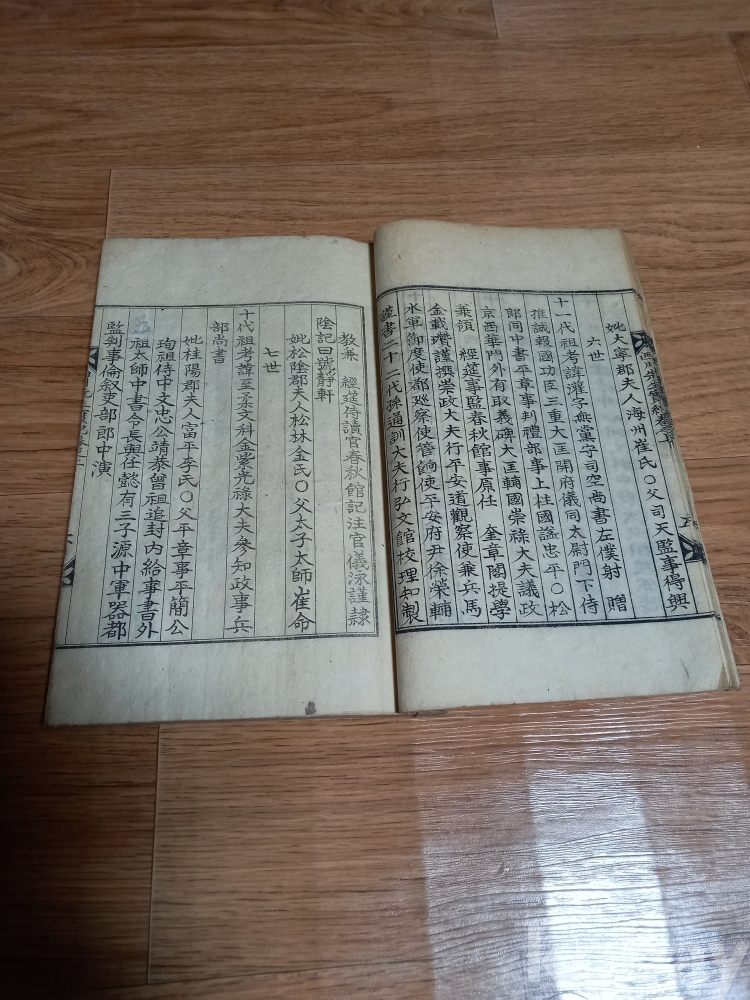 妣大寧郡夫人海州崔氏○父司天監事得興
六世
十一代祖考諱濯字無黨字司空尙書左僕射 贈
推誠報國功臣三重大匡開府儀同太尉門下侍
郞同中書平章事判禮部事上柱國謚忠平○松
京西華門外有取義碑大匡輔國崇祿大夫議政
兼領 經筵事監春秋館事原任 奎章閣提學
金載瓚謹撰崇政大夫行平安道觀察使兼兵馬
水軍節度使都巡察使管餉使平安府尹徐榮輔
謹書二十二代孫通訓大夫行弘文館校理知製
敎兼 經筵侍讀官春秋館記注官儀永謹隷
陰記曰號靜軒
妣松陰郡夫人松林金氏○父太子太師崔命
七世
十代祖考諱至柔文科金紫光祿大夫參知政事兵
部尙書
妣桂陽郡夫人富平李氏○父平章事平簡公
珣祖侍中文忠公靖恭曾祖追封內給事書外
祖太師中書令長興任懿有三子源中軍器都
監判事倫敘吏部郞中演